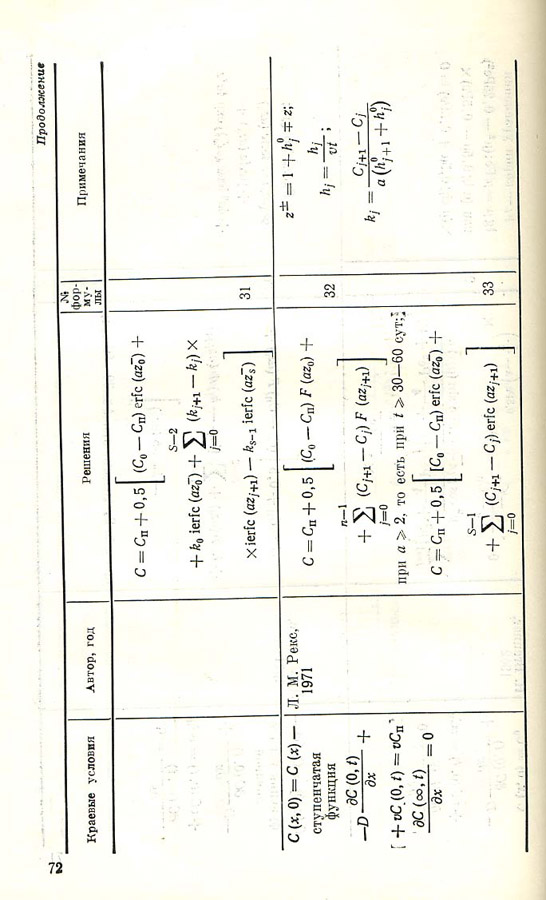 72
Продолжение
Краевые условия
Автор, год
Решения
№ фор-
му-
лы
Примечания
C = Cп + 0,5 [(C₀ − Cп) erfc (az₀⁻) +
+ k₀ ierfc (az₀⁻) + ∑_{j=0}^{S−2} (k_{j+1} − k_j) ×
× ierfc (az_{j+1}) − k_{s−1} ierfc (az_s⁻)]
31
C (x, 0) = C (x) —
ступенчатая
функция
−D ∂C (0, t)/∂x +
[ + vC (0, t) = vCп
∂C (∞, t)/∂x = 0
Л. М. Рекс,
1971
C = Cп + 0,5 [(C₀ − Cп) F (az₀) +
+ ∑_{j=0}^{n−1} (C_{j+1} − C_j) F (az_{j+1})]
32
при a ⩾ 2, то есть при t ⩾ 30—60 сут;
C = Cп + 0,5 [[C₀ − Cп) erfc (az₀⁻) +
+ ∑_{j=0}^{S−1} (C_{j+1} − C_j) erfc (az_{j+1})]
33
z^± = 1 + h_j⁰ ∓ z;
h_j = h_j/vt ;
k_j = (C_{j+1} − C_j)/a (h⁰_{j+1} + h⁰_j)